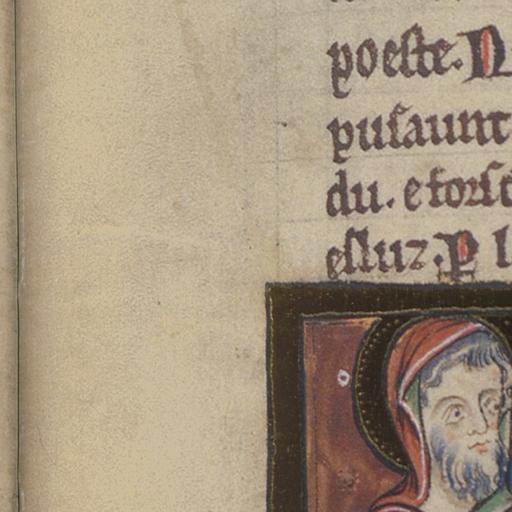 poeste. N
pusaunt
du. e forse
esluz. P l